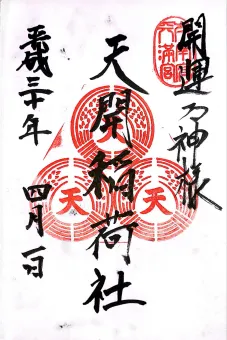 開運の神様
天開稲荷社
天
天
天
平成三十年 四月一日